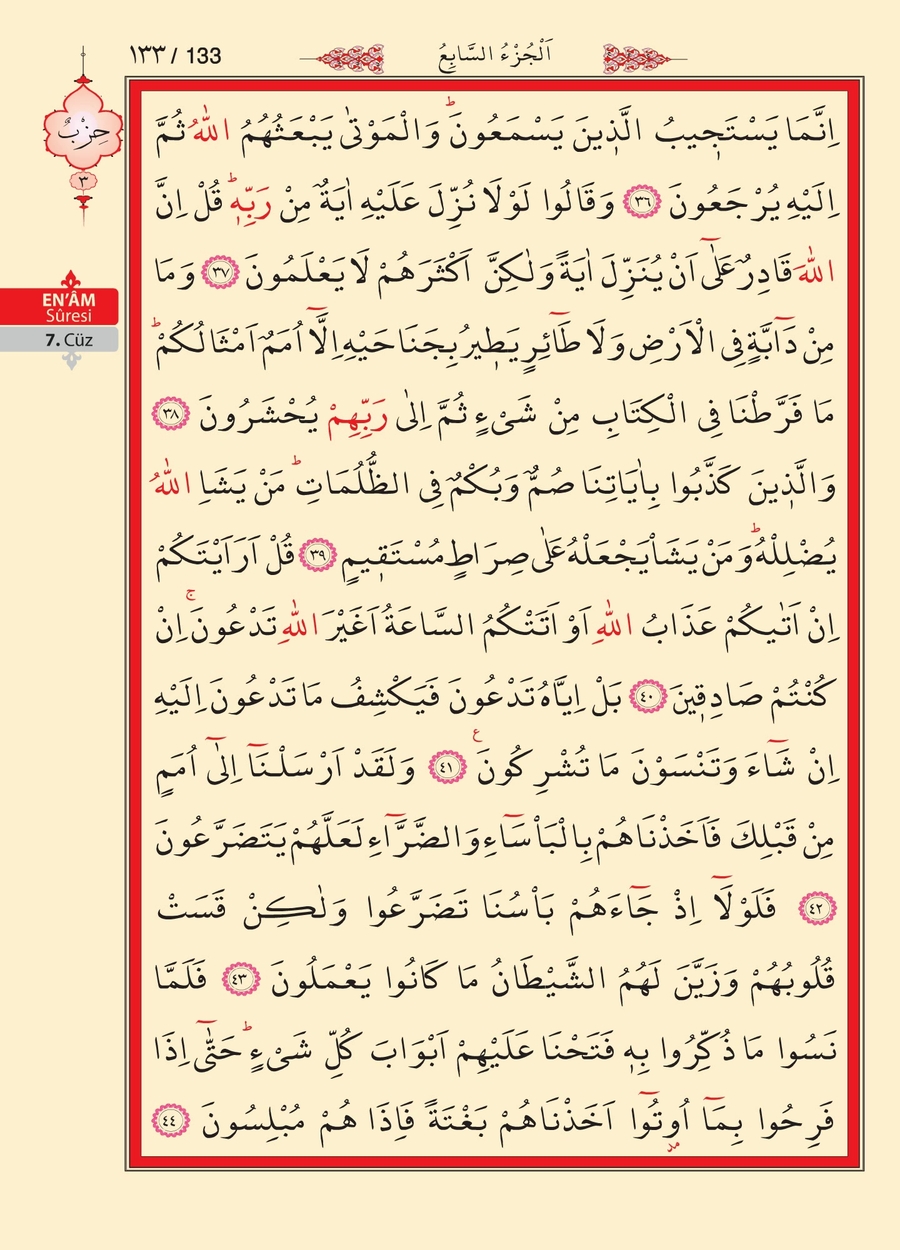 ١٣٣ / 133
اَلْجُزْءُ السَّابِعُ
حِزْبٌ
٣
EN’ÂM
Sûresi
7. Cüz
اِنَّمَا يَسْتَجٖيبُ الَّذٖينَ يَسْمَعُونَۜ وَالْمَوْتٰى يَبْعَثُهُمُ اللّٰهُ ثُمَّ
اِلَيْهِ يُرْجَعُونَ ﴿٣٦﴾ وَقَالُوا لَوْلَا نُزِّلَ عَلَيْهِ اٰيَةٌ مِنْ رَبِّهٖۜ قُلْ اِنَّ
اللّٰهَ قَادِرٌ عَلٰٓى اَنْ يُنَزِّلَ اٰيَةً وَلٰكِنَّ اَكْثَرَهُمْ لَا يَعْلَمُونَ ﴿٣٧﴾ وَمَا
مِنْ دَٓابَّةٍ فِى الْاَرْضِ وَلَا طَٓائِرٍ يَطٖيرُ بِجَنَاحَيْهِ اِلَّٓا اُمَمٌ اَمْثَالُكُمْۜ
مَا فَرَّطْنَا فِى الْكِتَابِ مِنْ شَىْءٍ ثُمَّ اِلٰى رَبِّهِمْ يُحْشَرُونَ ﴿٣٨﴾
وَالَّذٖينَ كَذَّبُوا بِاٰيَاتِنَا صُمٌّ وَبُكْمٌ فِى الظُّلُمَاتِۜ مَنْ يَشَاِ اللّٰهُ
يُضْلِلْهُۜ وَمَنْ يَشَاْ يَجْعَلْهُ عَلٰى صِرَاطٍ مُسْتَقٖيمٍ ﴿٣٩﴾ قُلْ اَرَاَيْتَكُمْ
اِنْ اَتٰيكُمْ عَذَابُ اللّٰهِ اَوْ اَتَتْكُمُ السَّاعَةُ اَغَيْرَ اللّٰهِ تَدْعُونَۚ اِنْ
كُنْتُمْ صَادِقٖينَ ﴿٤٠﴾ بَلْ اِيَّاهُ تَدْعُونَ فَيَكْشِفُ مَا تَدْعُونَ اِلَيْهِ
اِنْ شَٓاءَ وَتَنْسَوْنَ مَا تُشْرِكُونَ ع ﴿٤١﴾ وَلَقَدْ اَرْسَلْنَٓا اِلٰٓى اُمَمٍ
مِنْ قَبْلِكَ فَاَخَذْنَاهُمْ بِالْبَاْسَٓاءِ وَالضَّرَّٓاءِ لَعَلَّهُمْ يَتَضَرَّعُونَ
﴿٤٢﴾ فَلَوْلَٓا اِذْ جَٓاءَهُمْ بَاْسُنَا تَضَرَّعُوا وَلٰكِنْ قَسَتْ
قُلُوبُهُمْ وَزَيَّنَ لَهُمُ الشَّيْطَانُ مَا كَانُوا يَعْمَلُونَ ﴿٤٣﴾ فَلَمَّا
نَسُوا مَا ذُكِّرُوا بِهٖ فَتَحْنَا عَلَيْهِمْ اَبْوَابَ كُلِّ شَىْءٍۜ حَتّٰٓى اِذَا
فَرِحُوا بِمَٓا اُو۫تُٓوا اَخَذْنَاهُمْ بَغْتَةً فَاِذَا هُمْ مُبْلِسُونَ ﴿٤٤﴾
مد